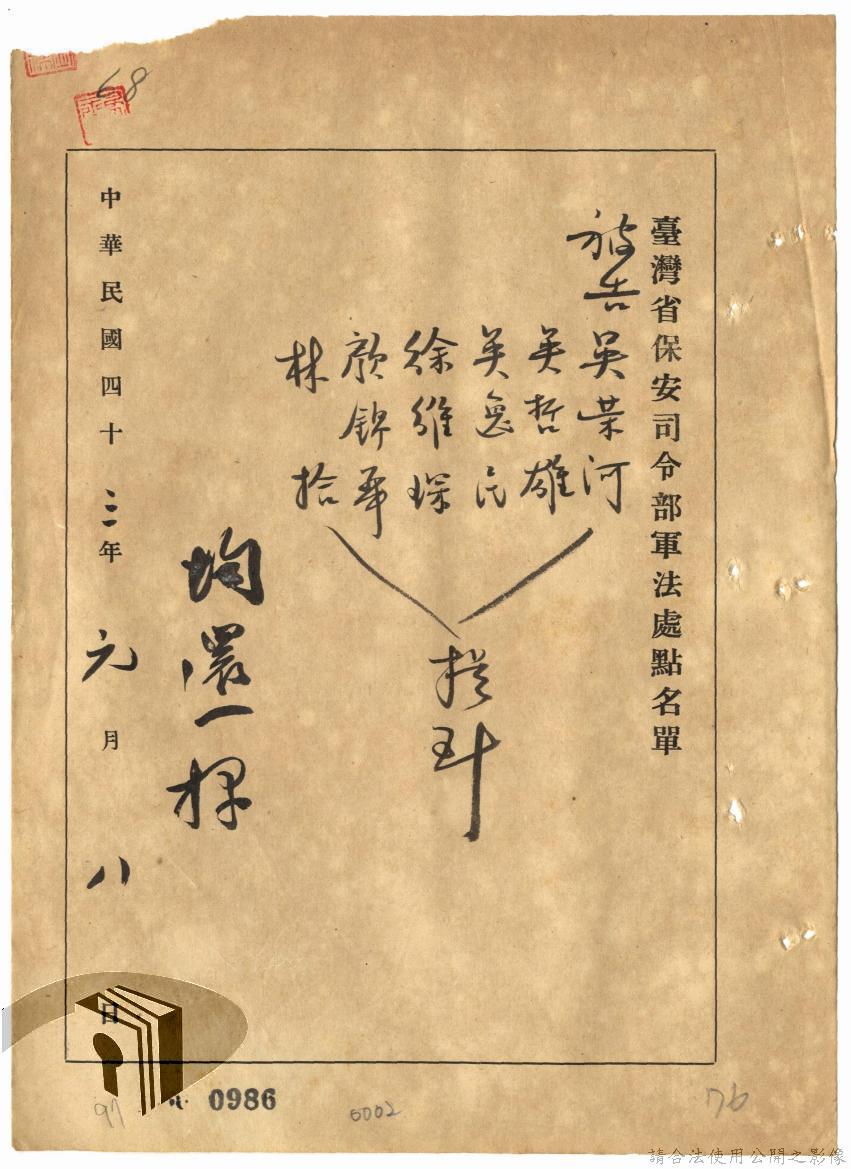 68
臺灣省保安司令部軍法處點名單
被告
吳荣河
吳哲雄
吳逸民
徐維琛
顏錦華
林 拾
提訊
均還押
中華民國四十三年元月八日
0986
97
0002
76
請合法使用公開之影像